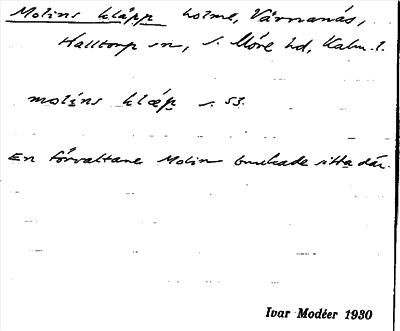 Molins kläpp holme, Värnanäs,
Halltorp sn, S. Möre hd, Kalm. l.
molins klæp s. 53.
En förvaltare Molin brukade sitta där.
Ivar Modéer 1930